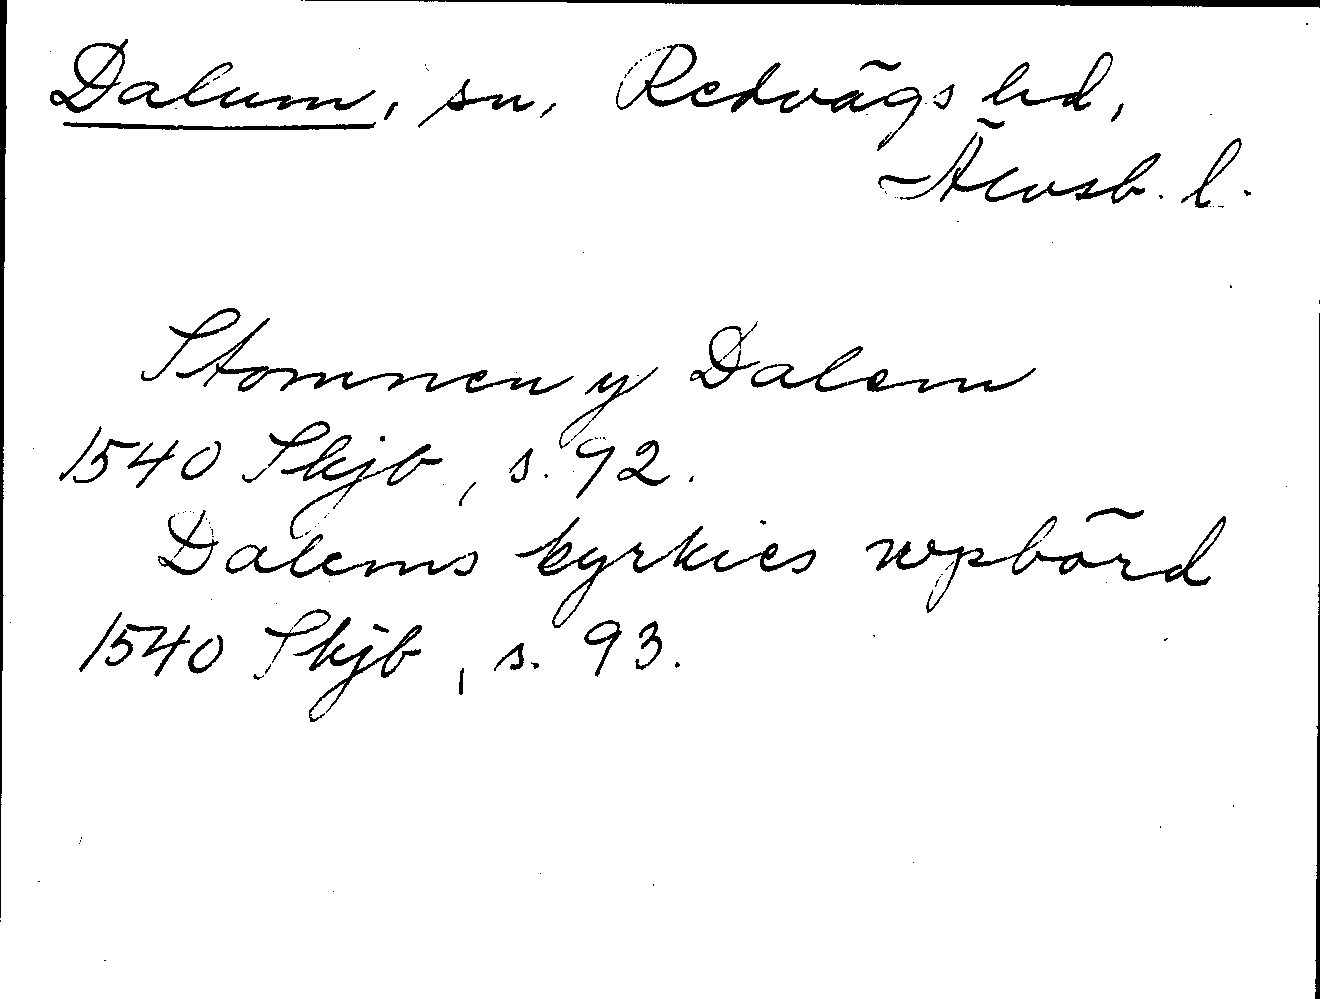 Dalum, sn, Redvägs hd,
Älvsb. l.
Stomnen y Dalem
1540 Skjb, s. 92.
Dalems kyrkies wpbörd
1540 Skjb, s. 93.